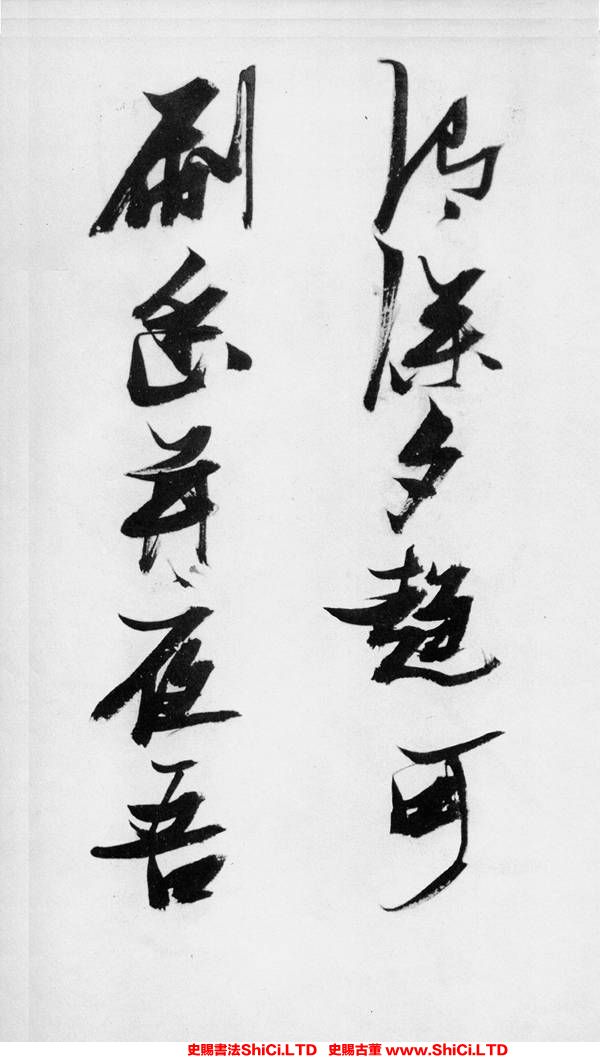 渭深夕趨可
刷幽并夜吾
史賜書法ShiCi.LTD 史賜古董 www.ShiCi.LTD